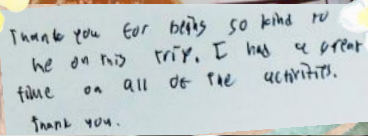 Thank you for being so kind to
me on this trip. I had a great
time on all of the activities.
Thank you.